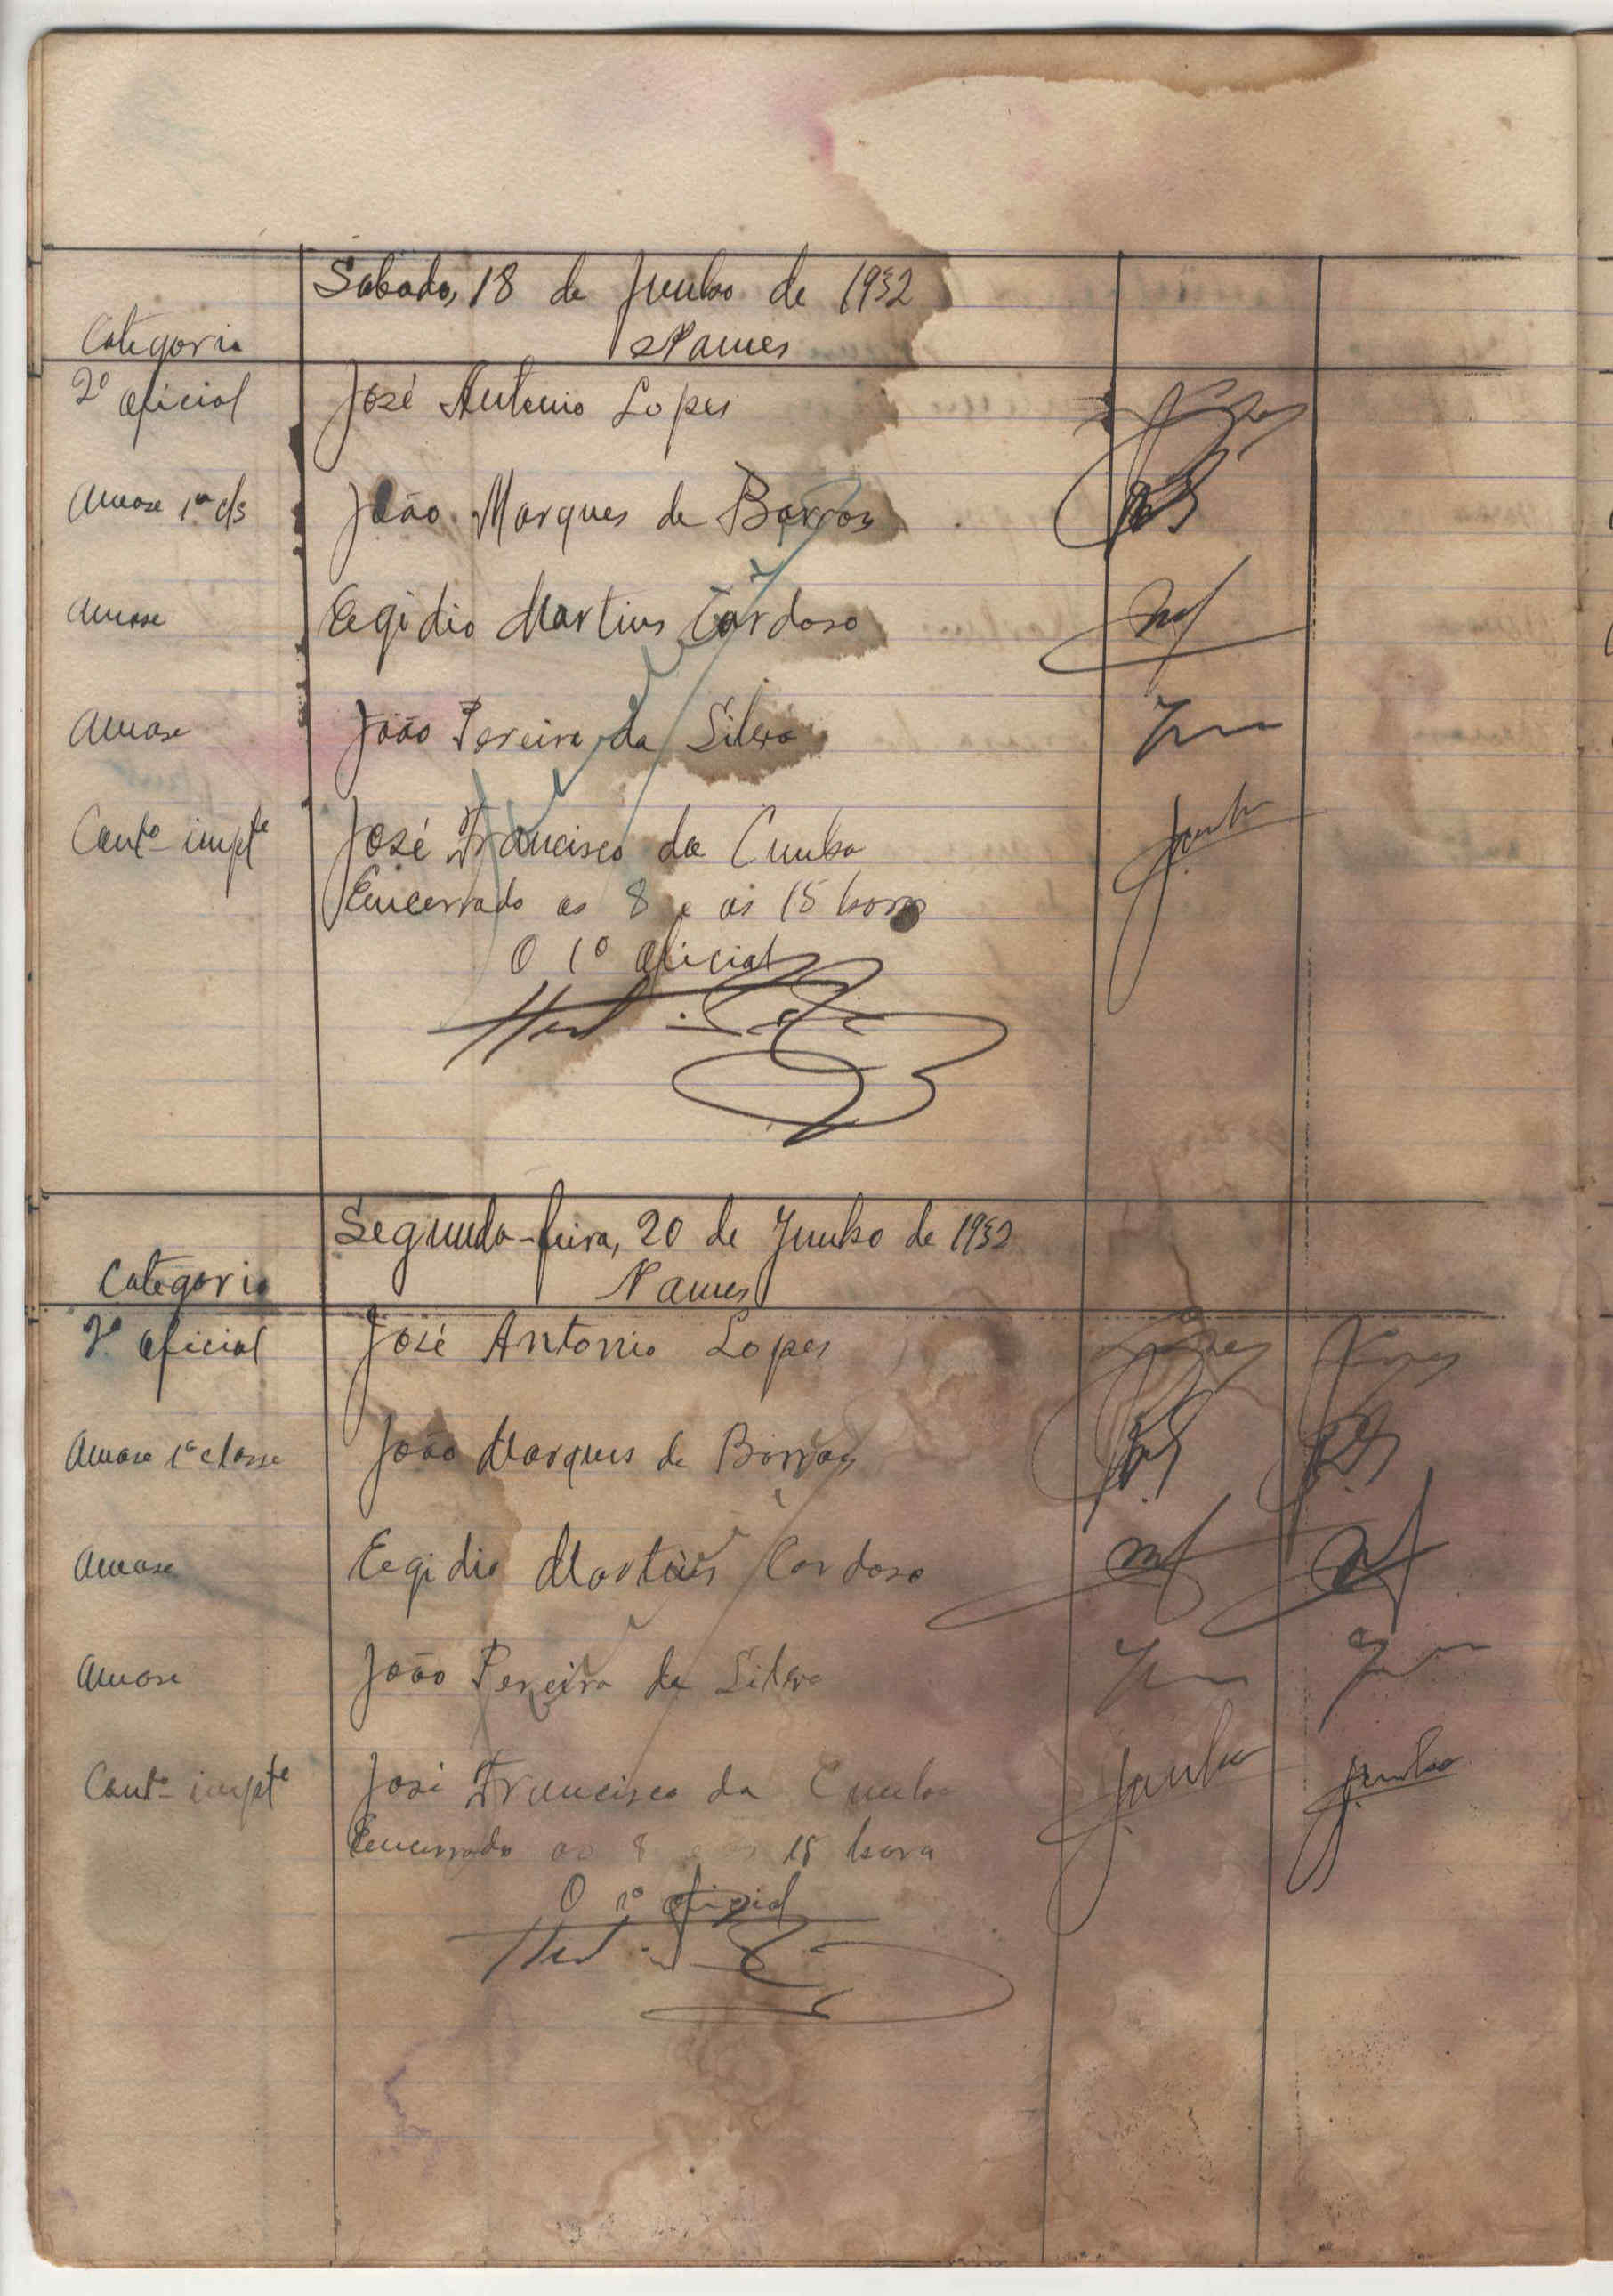 Sabado, 18 de Junho de 1932
Categoria Nomes
2º oficial José Antonio Lopes
Amase 1ª cls João Marques de Barros
Amase Egidio Martins Cardoso
Amase João Pereira da Silva
Contº impte José Francisco da Cunha
Encerrado as 8 e as 15 horas
O 1º oficial
Segunda-feira, 20 de Junho de 1932
Categoria Nomes
2º oficial José Antonio Lopes
Amase 1ª classe João Marques de Barros
Amase Egidio Martins Cardoso
Amase João Pereira da Silva
Contº impte José Francisco da Cunha
Encerrado as 8 e as 15 hora
O 1º oficial